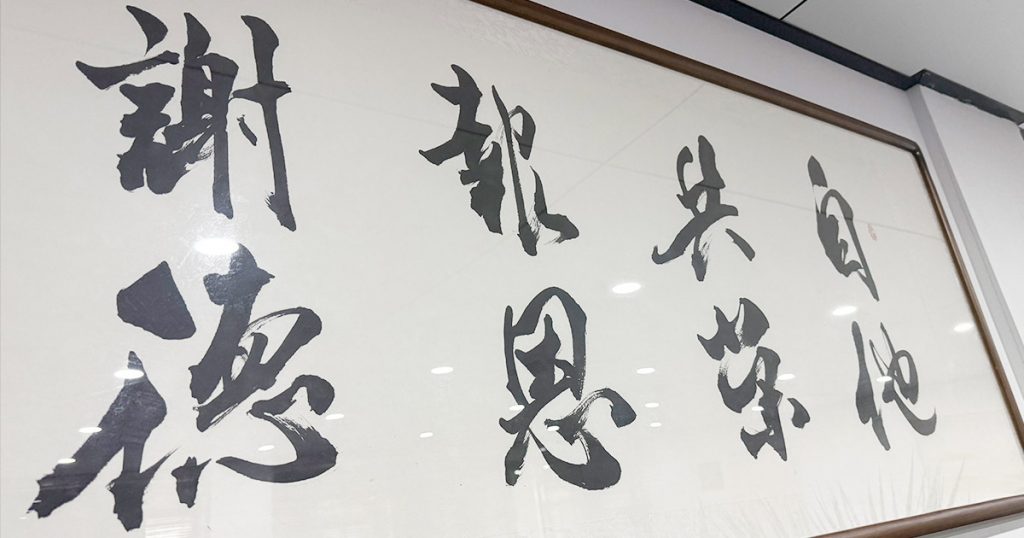 自他
共栄
報恩
謝徳